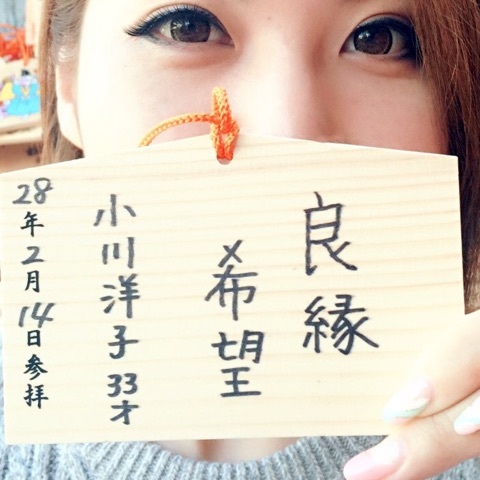 良縁
希望
小川洋子 33才
28年2月14日参拝